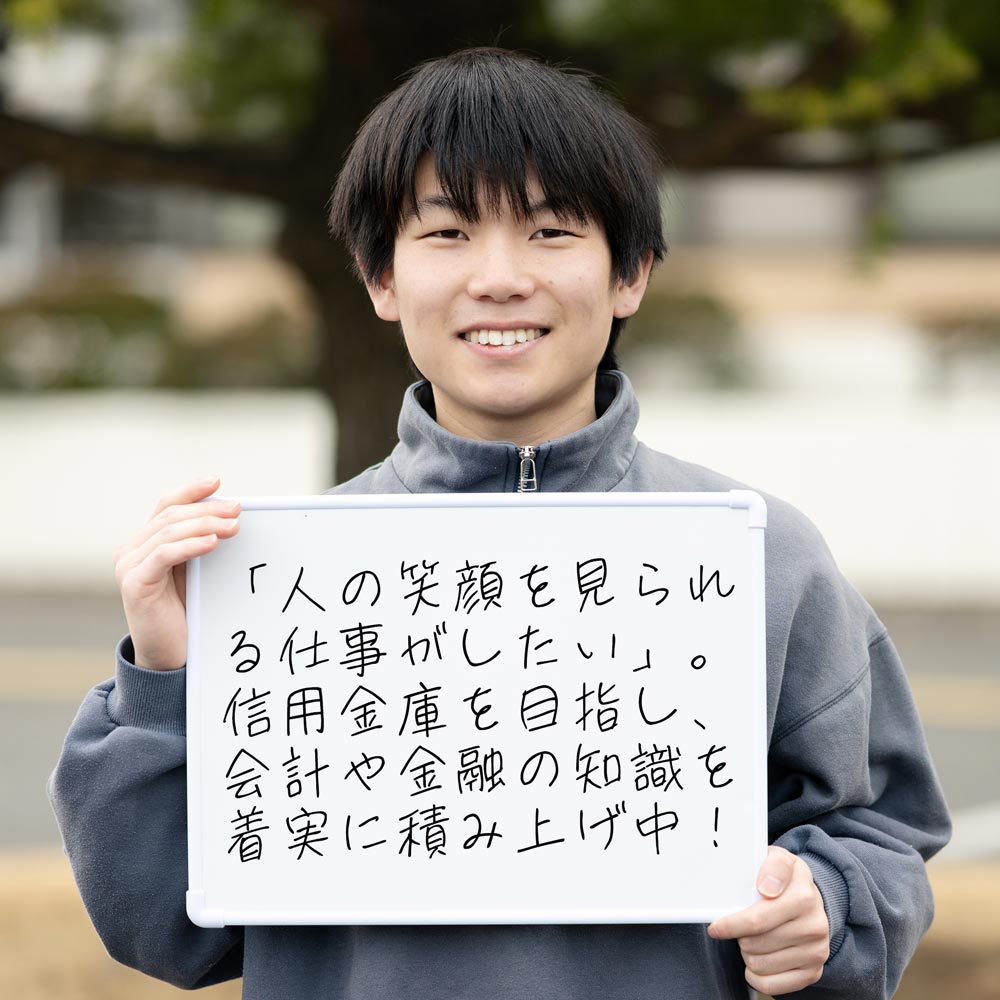 「人の笑顔を見られ
る仕事がしたい」。
信用金庫を目指し、
会計や金融の知識を
着実に積み上げ中！